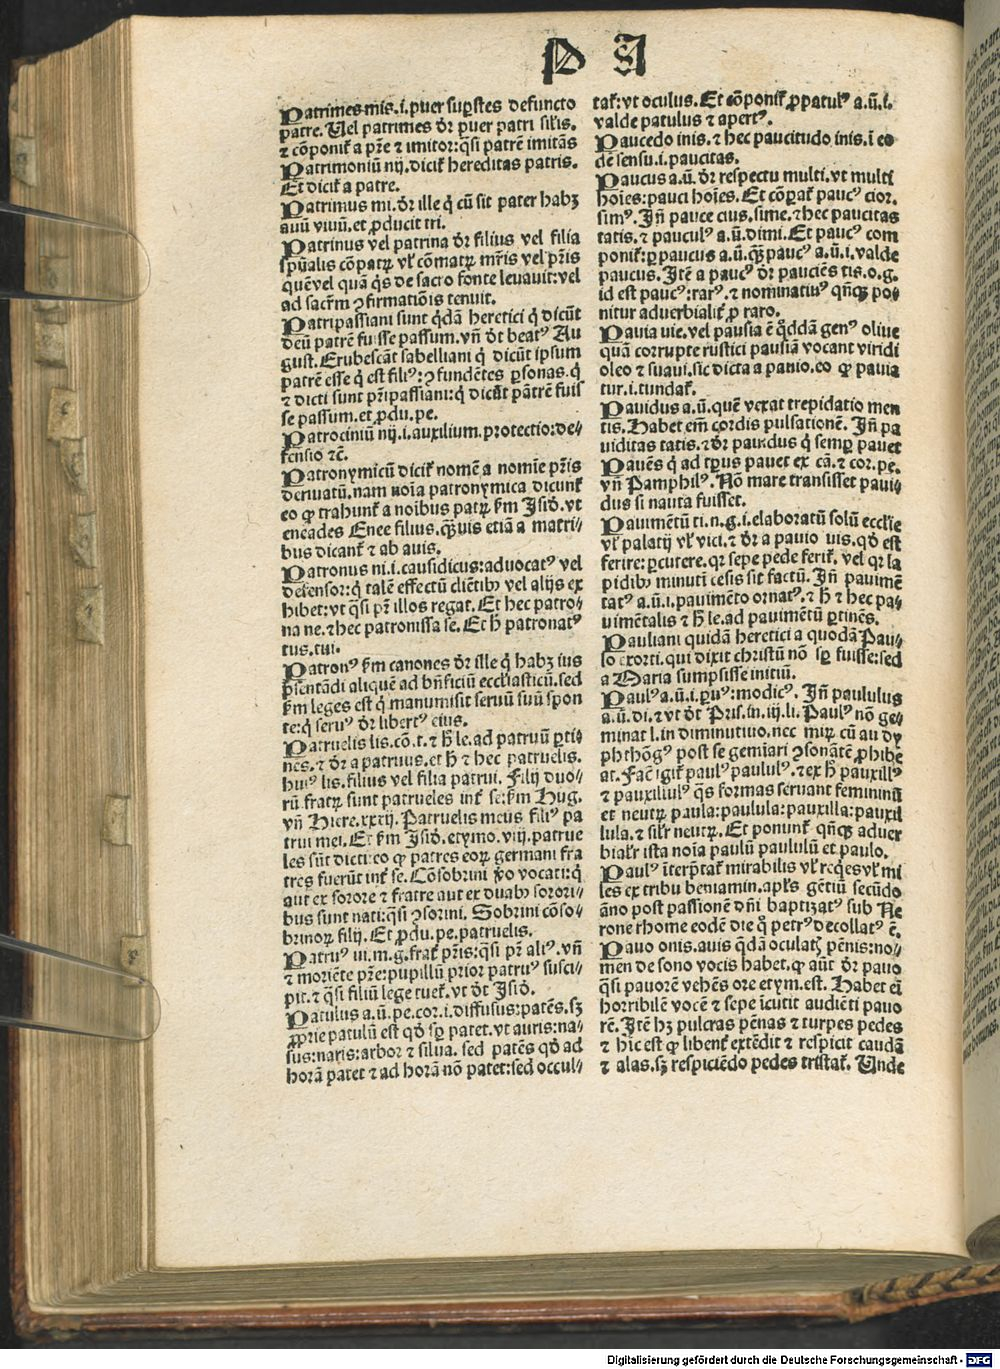 P A
Patrimes mis.i.puer sup̱stes defuncto
patre. Uel patrimes dr̄ puer patri sil̄is.
⁊ cōponit̄ a pr̄e ⁊ imitor:q̄si patrē imitās
Patrimoniū nij.dicit̄ hereditas patris.
Et dicit̄ a patre.
Patrimus mi.dr̄ ille q̇ cū sit pater habꝫ
auū viuū.et ꝓducit tri.
Patrinus vel patrina dr̄ filius vel filia
spūalis cōpatꝝ vl̄ cōmatꝝ mr̄is vel pr̄is
quēvel quā q̇s de sacro fonte leuauit:vel
ad sacr̄m ꝯfirmatiōis tenuit.
Patripassiani sunt q̇dā heretici q̇ dicūt
deū patrē fuisse passum.vn̄ dt̄ beatꝰ Au
gust.Erubescāt sabelliani q̇ dicūt ipsum
patrē esse q̇ est filiꝰ:ꝯfundētes ꝑsonas.q̇
⁊ dicti sunt pr̄ipassiani:q̇ dicūt pātrē fuis
se passum.et ꝓdu.pe.
Patrociniū nij.i.auxilium.protectio:de⸗
fensio ⁊c̄.
Patronymicū dicit̄ nomē a nomīe pr̄is
deriuatū.nam noīa patronymica dicunt̄
eo ꝙ trahunt̄ a noībus patꝝ ẜm Isid̄.vt
eneades Enee filius.q̄ꝫuis etiā a matri⸗
bus dicant̄ ⁊ ab auis.
Patronus ni.i.causidicus:aduocatꝰ vel
defensor:q̇ talē effectū cliētibꝫ vel alijs ex
hibet:vt q̄si pr̄ illos regat.Et hec patro⸗
na ne.⁊hec patronissa se.Et h̄ patronatꝰ
tus.tui.
Patronꝰ ẜm canones dr̄ ille q̇ habꝫ ius
p̄sentādi aliquē ad bn̄ficiū eccl̄iasticū.sed
ẜm leges est q̇ manumisit seruū suū spon
te:q̇ seruꝰ dr̄ libertꝰ eius.
Patruelis lis.cō.t.⁊ h̄ le.ad patruū ꝑti⸗
nēs.⁊ dr̄ a patruus.et h̄ ⁊ hec patruelis.
huiꝰ lis.filius vel filia patrui. Filij duo⸗
rū fratꝝ sunt patrueles int̄ se:ẜm Hug.
vn̄ Hiere.xxxij.Patruelis meus filiꝰ pa
trui mei.Et ẜm Isid̄.etymo.viij.patrue
les sūt dicti:eo ꝙ patres eoꝝ germani fra
tres fuerūt int̄ se.Cōsobrini ꝟo vocati:q̇
aut ex sorore ⁊ fratre aut ex duabꝫ sorori⸗
bus sunt nati:q̄si ꝯsorini. Sobrini cōso⸗
brinoꝝ filij.Et ꝓdu.pe.patruelis.
Patruꝰ ui.m.g.frat̄ pr̄is:q̄si pr̄ aliꝰ.vn̄
⁊ moriēte pr̄e:pupillū prior patruꝰ susci⸗
pit.⁊ q̄si filiū lege tuet̄.vt dt̄ Isid̄.
Patulus a.ū.pe.cor.i.diffusus:patēs.sꝫ
ꝓprie patulū est qd̄ sꝑ patet.vt auris:na⸗
sus:naris:arbor ⁊ silua. sed patēs qd̄ ad
horā patet ⁊ ad horā nō patet:sed occul⸗
tat̄:vt oculus.Et cōponit̄ ꝓpatulꝰ a.ū.i.
valde patulus ⁊ apertꝰ.
Paucedo inis.⁊ hec paucitudo inis.ī eo
dē sensu.i.paucitas.
Paucus a.ū.dr̄ respectu multi.vt multi
hoīes:pauci hoīes. Et cōꝑat̄ paucꝰ cior.
simꝰ.In̄ pauce cius.sime.⁊hec paucitas
tatis.⁊ pauculꝰ a.ū.dimi.Et paucꝰ com
ponit̄:ꝑpaucus a.ū.q̄ꝫpaucꝰ a.ū.i.valde
paucus. Itē a paucꝰ dr̄ pauciēs tis.o.g.
id est paucꝰ:rarꝰ.⁊ nominatiuꝰ qn̄qꝫ po⸗
nitur aduerbialit̄ ꝓ raro.
Pauia uie.vel pausia ē q̇ddā genꝰ oliue
quā corrupte rustici pausiā vocant viridi
oleo ⁊ suaui.sic dicta a pauio.eo ꝙ pauia
tur.i.tundat̄.
Pauidus a.ū.quē vexat trepidatio men
tis. Habet em̄ cordis pulsationē. In̄ pa
uiditas tatis.⁊dr̄ pauidus q̇ semꝑ pauet
Pauēs q̇ ad tp̄us pauet ex cā.⁊ cor.pe.
vn̄ Pamphilꝰ. Nō mare transisset paui⸗
dus si nauta fuisset.
Pauimētū ti.n.g.i.elaboratū solū eccl̄ie
vl̄ palatij vl̄ vici.⁊ dr̄ a pauio uis.qd̄ est
ferire:ꝑcutere.qꝛ sepe pede ferit̄. vel qꝛ la
pidibꝫ minutī cesis sit factū. In̄ pauimē
tatꝰ a.ū.i.pauimēto ornatꝰ.⁊ h̄ ⁊ hec pa⸗
uimētalis ⁊ h̄ le.ad pauimētū ꝑtinēs.
Pauliani quidā heretici a quodā Pau⸗
lo exorti.qui dixit christū nō sꝑ fuisse:sed
a Maria sumpsisse initiū.
Paulꝰ a.ū.i.ꝑuꝰ:modicꝰ. In̄ paululus
a.ū.di.⁊ vt dt̄ Pris.in.iij.li. Paulꝰ nō ge⸗
minat l.in diminutiuo.nec miꝝ cū au dy
phthōgꝰ post se gemiari ꝯsonātē ꝓhibe
at. Facē igit̄ paulꝰ paululꝰ.⁊ex h̄ pauxillꝰ
⁊ pauxillulꝰ q̄s formas seruant femininū
et neutꝝ paula:paulula:pauxilla:pauxil
lula.⁊ sil̄r neutꝝ. Et ponunt̄ qn̄qꝫ aduer
bial̄r ista noīa paulū paululū et paulo.
Paulꝰ īterp̄tat̄ mirabilis vl̄ req̇es vl̄ mi
les ex tribu beniamin.apl̄s gētiū secūdo
āno post passionē dn̄i baptizatꝰ sub Ne
rone rhome eodē die q̇ petrꝰ decollatꝰ ē.
Pauo onis.auis q̄dā oculatꝫ pēnis:no⸗
men de sono vocis habet.ꝙ aūt dr̄ pauo
q̄si pauorē vehēs ore etym.est. Habet ei
horribilē vocē ⁊ sepe īcutit audiēti pauo
rē. Itē hꝫ pulcras pēnas ⁊ turpes pedes
⁊ hic est ꝙ libent̄ extēdit ⁊ respicit caudā
⁊ alas.sꝫ respiciēdo pedes tristat̄. Unde
Digitalisierung gefördert durch die Deutsche Forschungsgemeinschaft - DFG